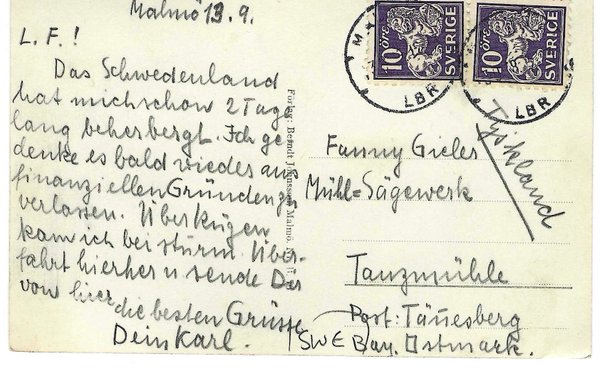 Malmö 13.9.
L.F.!
Das Schwedenland
hat mich schon 2 Tage
lang beherbergt. Ich ge
denke es bald wieder aus
finanziellen Gründen zu
verlassen. Über Rügen
kam ich bei Sturm. Über-
fahrt hierher u sende Dir
von hier die besten Grüsse
Dein Karl.
Förlag: Berndt Johnsson, Malmö.
10 öre
SVERIGE
10 öre
SVERIGE
LBR
LBR
Tyskland
Fanny Gieler
Mühl=Sägewerk
Tanzmühle
Post: Tännesberg
Bay. Ostmark.
SWE